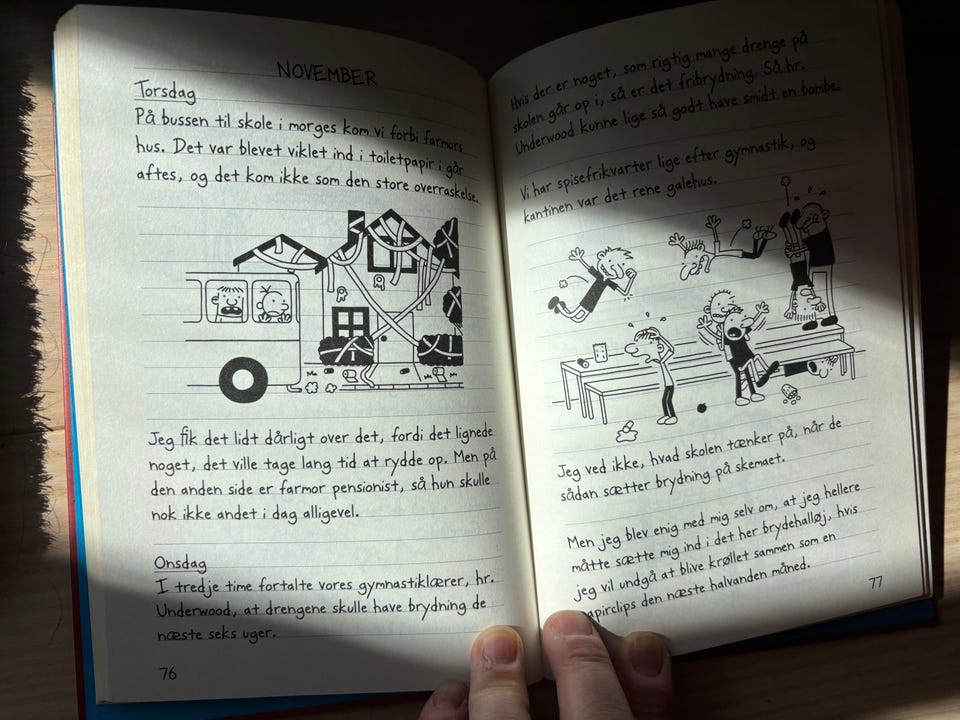 NOVEMBER
Torsdag
På bussen til skole i morges kom vi forbi farmors
hus. Det var blevet viklet ind i toiletpapir i går
aftes, og det kom ikke som den store overraskelse.
Jeg fik det lidt dårligt over det, fordi det lignede
noget, det ville tage lang tid at rydde op. Men på
den anden side er farmor pensionist, så hun skulle
nok ikke andet i dag alligevel.
Onsdag
I tredje time fortalte vores gymnastiklærer, hr.
Underwood, at drengene skulle have brydning de
næste seks uger.
76
Hvis der er noget, som rigtig mange drenge på
skolen går op i, så er det fribrydning. Så hr.
Underwood kunne lige så godt have smidt en bombe.
Vi har spisefrikvarter lige efter gymnastik, og
kantinen var det rene galehus.
Jeg ved ikke, hvad skolen tænker på, når de
sådan sætter brydning på skemaet.
Men jeg blev enig med mig selv om, at jeg hellere
måtte sætte mig ind i det her brydehalløj, hvis
jeg vil undgå at blive krøllet sammen som en
papirclips den næste halvanden måned.
77